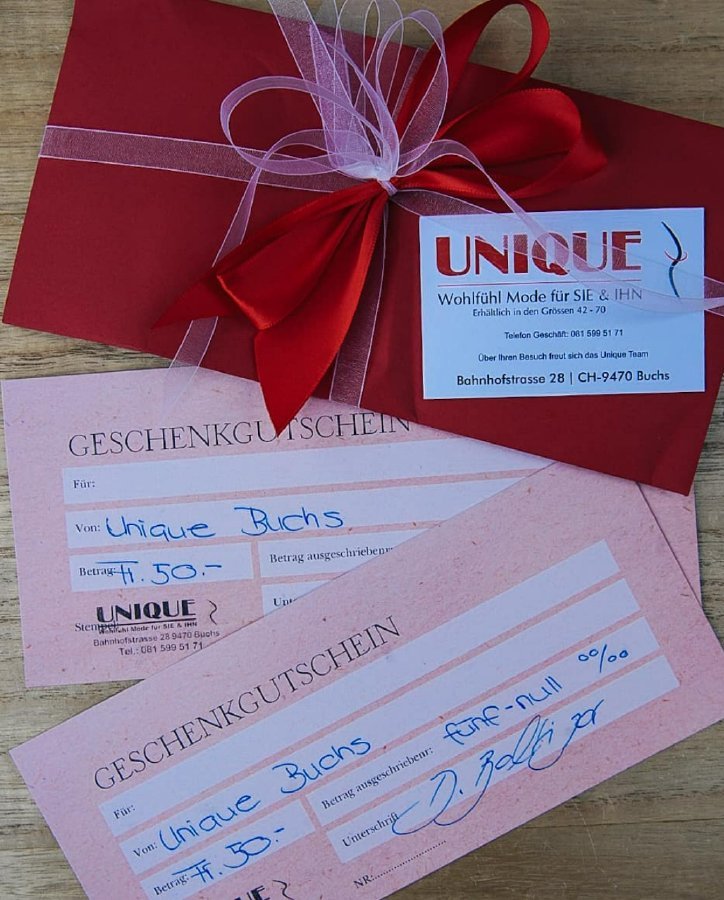 UNIQUE
Wohlfühl Mode für SIE & IHN
Erhältlich in den Grössen 42 - 70
Telefon Geschäft: 081 599 51 71
Über Ihren Besuch freut sich das Unique Team
Bahnhofstrasse 28 | CH-9470 Buchs
GESCHENKGUTSCHEIN
Für:
Von: Unique Buchs
Betrag: Fr. 50.-
Betrag ausgeschrieben:
Stempel:
UNIQUE
Wohlfühl Mode für SIE & IHN
Bahnhofstrasse 28 9470 Buchs
Tel.: 081 599 51 71
GESCHENKGUTSCHEIN
Für:
Von: Unique Buchs
Betrag: Fr. 50.-
Betrag ausgeschrieben: fünf-null 00/00
Unterschrift
NR: